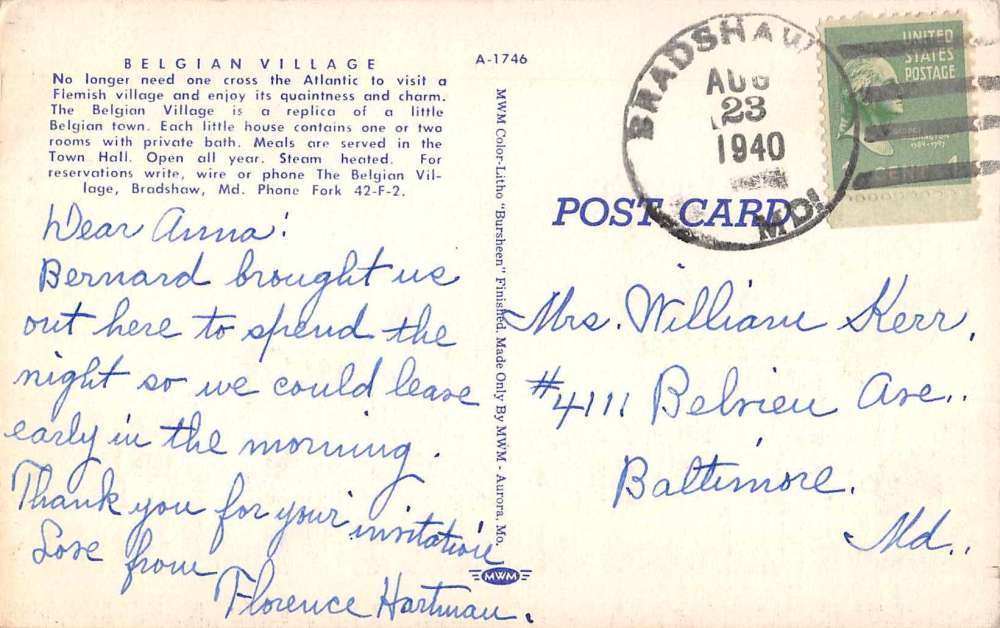 BELGIAN VILLAGE
No longer need one cross the Atlantic to visit a
Flemish village and enjoy its quaintness and charm.
The Belgian Village is a replica of a little
Belgian town. Each little house contains one or two
rooms with private bath. Meals are served in the
Town Hall. Open all year. Steam heated. For
reservations write, wire or phone The Belgian Vil-
lage, Bradshaw, Md. Phone Fork 42-F-2.
Dear Anna:
Bernard brought us
out here to spend the
night so we could leave
early in the morning.
Thank you for your invitation
Love from
Florence Hartman.
A-1746
MWM Color-Litho "Bursheen" Finished. Made Only By MWM - Aurora, Mo.
MWM
BRADSHAW
AUG
23
1940
MD.
UNITED
STATES
POSTAGE
1 CENT 1
POST CARD
Mrs. William Kerr,
#4111 Belview Ave..
Baltimore.
Md..